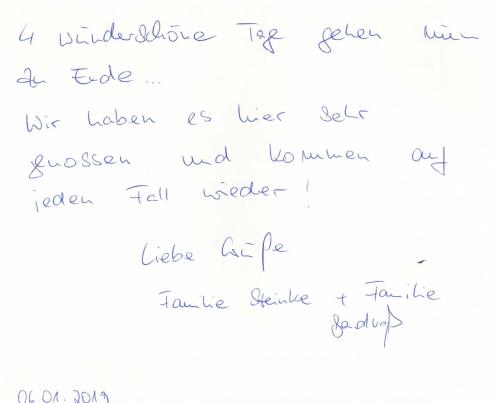 4 wünderschöne Tage gehen nun
zu Ende...
Wir haben es hier sehr
genossen und kommen auf
jeden Fall wieder!
Liebe Grüße
Familie Steinke + Familie
06.01.2019